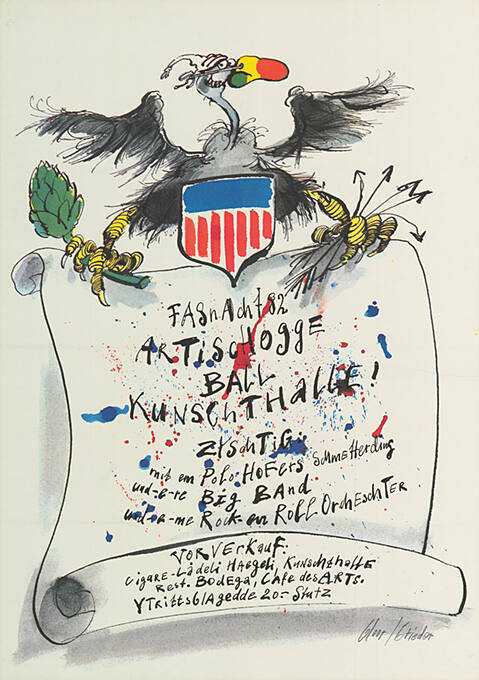 FASnAcht 82
ARTischogge
BALL
KUNSchTHaLLE!
ZyschTiG
mit em Polo-HOFERS Schmetterding
und-e-re BiG BAnd
und-e-me Rock-en-RÖLL OrchEschTER
VORVERKauF:
Cigare-Lädeli Haegeli, Kunschthalle
Rest. BodEga, Cafe des ARTS.
YTrittsblagedde 20.- Stutz